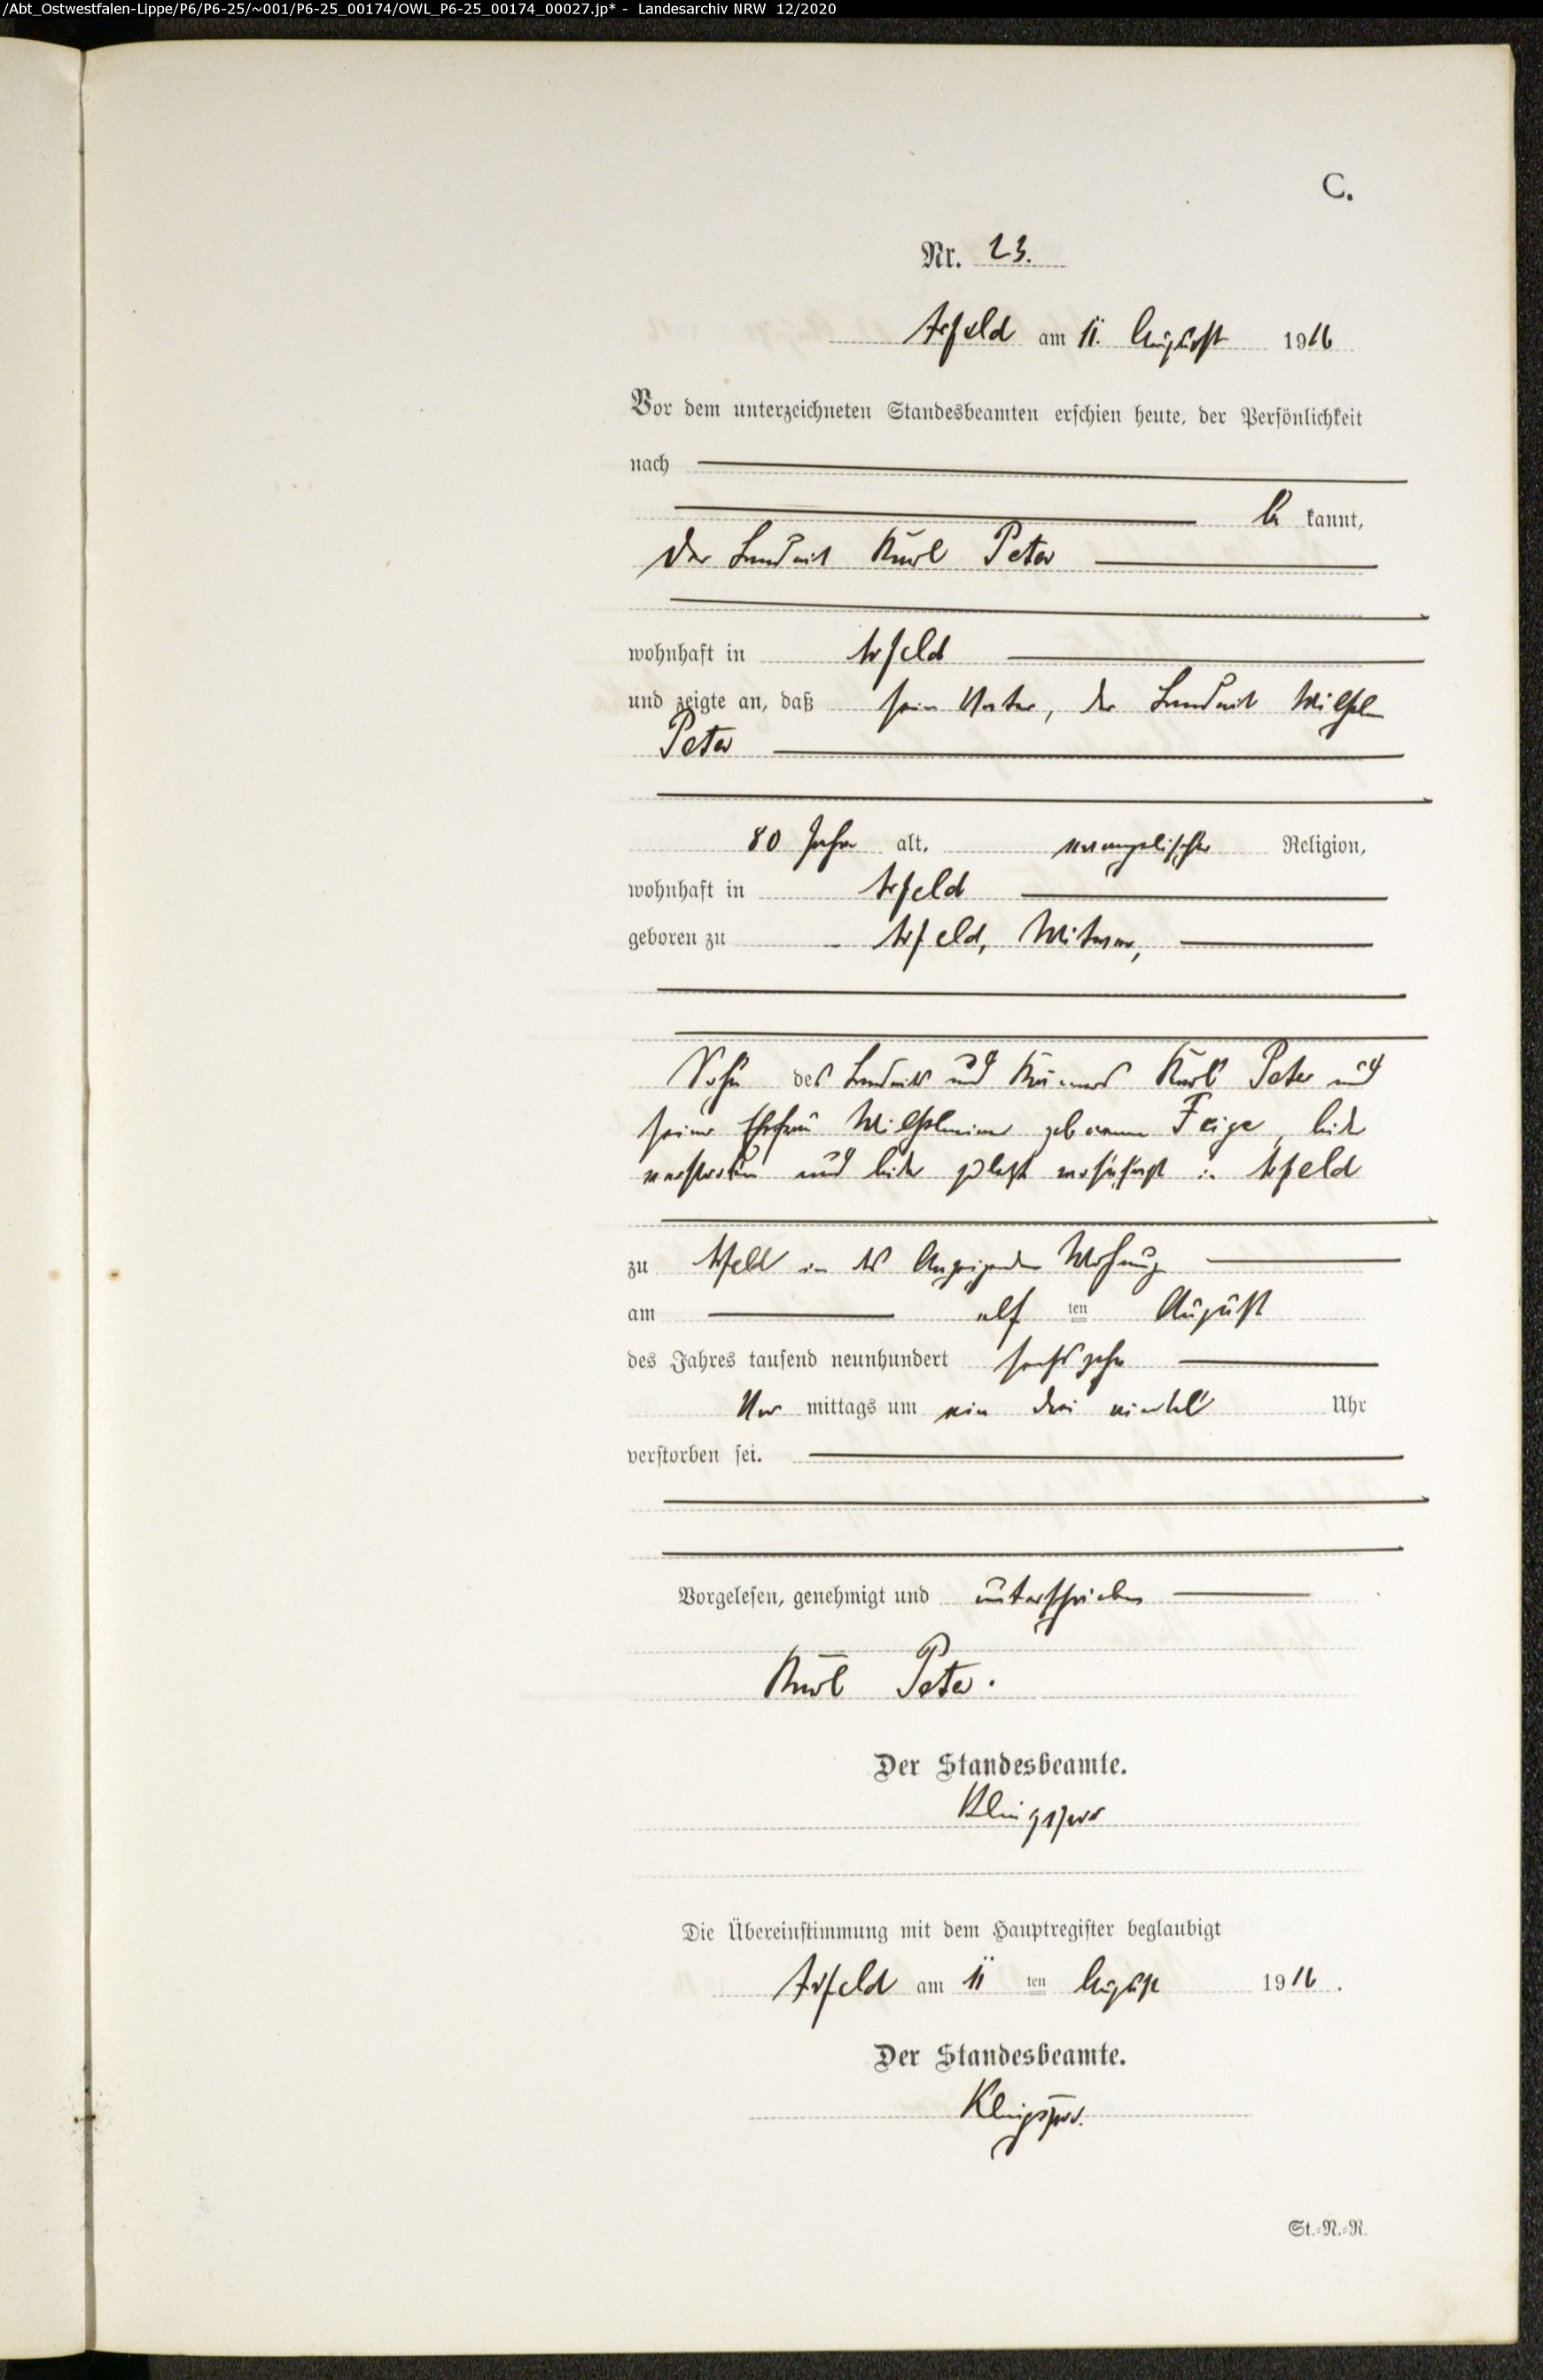 /Abt_Ostwestfalen-Lippe/P6/P6-25/~001/P6-25_00174/OWL_P6-25_00174_00027.jp* - Landesarchiv NRW 12/2020
C.
Nr. 23.
Arfeld am 11. August 1916
Vor dem unterzeichneten Standesbeamten erschien heute, der Persönlichkeit
nach
be kannt,
der Landwirt Karl Peter
wohnhaft in Arfeld
und zeigte an, daß sein Vater, der Landwirt Wilhelm
Peter
80 Jahre alt, evangelischer Religion,
wohnhaft in Arfeld
geboren zu Arfeld, Witwer,
Sohn des Landwirts und Karl Peter und
seiner Ehefrau Wilhelmine geborene Feige, beide
verstorben und beide zuletzt wohnhaft in Arfeld
zu Arfeld in des Anzeigenden Wohnung
am elf ten August
des Jahres tausend neunhundert sechszehn
Vor mittags um ein drei viertel Uhr
verstorben sei.
Vorgelesen, genehmigt und unterschrieben
Karl Peter.
Der Standesbeamte.
Klingspor
Die Übereinstimmung mit dem Hauptregister beglaubigt
Arfeld am 11 ten August 1916.
Der Standesbeamte.
Klingspor.
St.=N.=R.